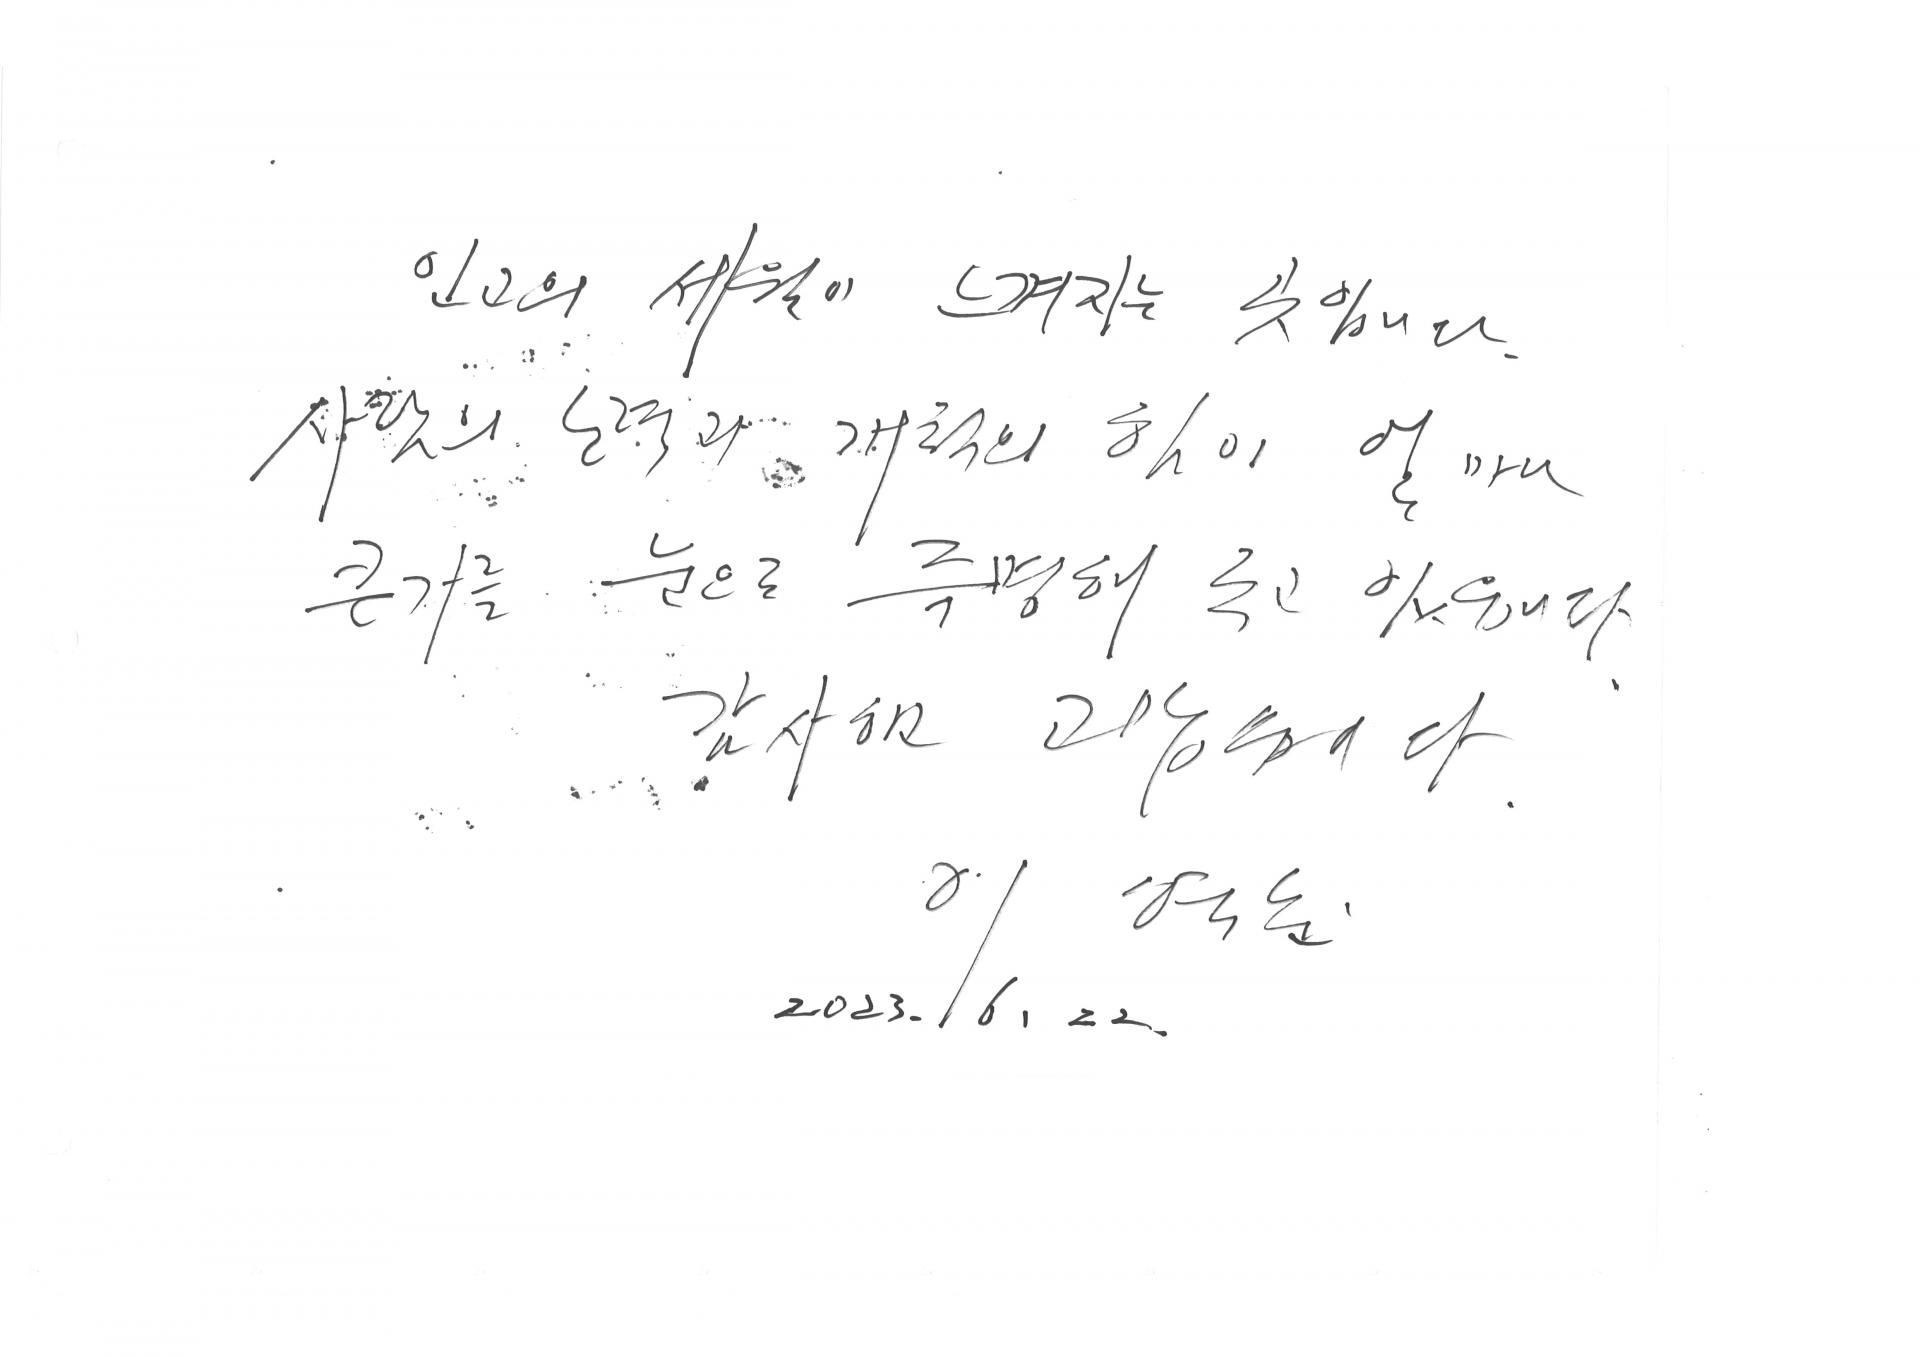 인고의 세월이 느껴지는 곳입니다.
사람의 노력과 개척의 힘이 얼마나
큰가를 눈으로 증명해 주고 있습니다.
감사하고
이
2023. 6. 22.